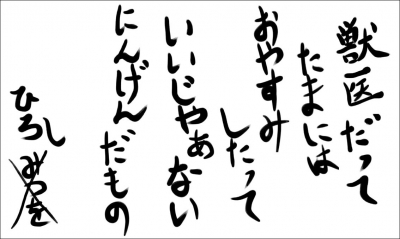 獣医だって
たまには
おやすみ
したって
いいじゃぁない
にんげんだもの
ひろし
みつを